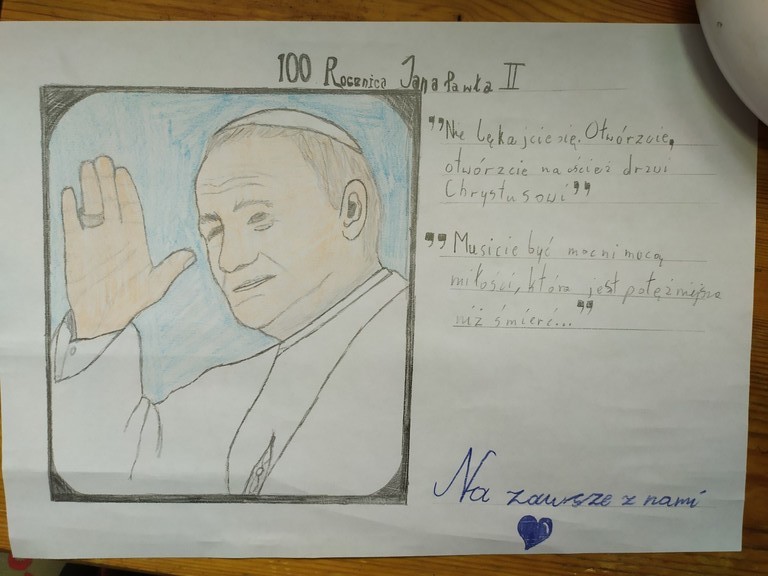 100 Rocznica Jana Pawła II
"Nie lękajcie się. Otwórzcie,
otwórzcie na oścież drzwi
Chrystusowi"
"Musicie być mocni mocą
miłości, która jest potężniejsza
niż śmierć..."
Na zawsze z nami